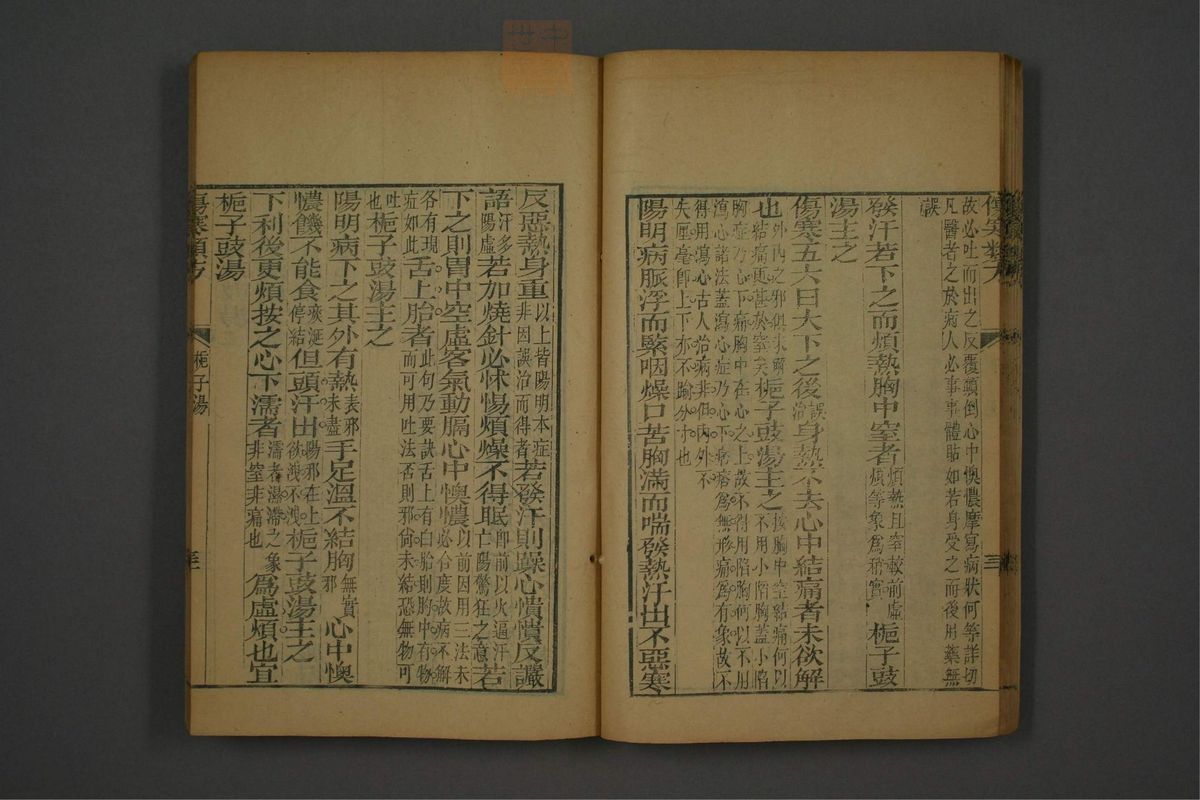 故必吐而出之反覆顛倒心中懊憹摩寫病狀何等詳切
凡醫者之於病人必事事體貼如若身受之而後用藥無
誤
發汗若下之而煩熱胸中窒者煩熱且窒較前虛煩等象爲稍實梔子豉
湯主之
傷寒五六日大下之後誤治身熱不去心中結痛者未欲解
也外內之邪俱未解結痛更甚於窒矣梔子豉湯主之按胸中窒結痛何以不用小陷胸蓋小陷
胸症乃心下痛胸中在心之上故不得用陷胸何以不用
瀉心諸法蓋瀉心症乃心下痞痞爲無形痛爲有象故不
得用瀉心古人治病非但內外不
失厘毫即上下亦不踰分寸也
陽明病脈浮而緊咽燥口苦胸滿而喘發熱汗出不惡寒
傷寒類方
反惡熱身重以上皆陽明本症非因誤治而得者若發汗則躁心憒憒反讝
語汗多陽虛若加燒針必怵惕煩燥不得眠即前以火逼汗亡陽驚狂之意若
下之則胃中空虛客氣動膈心中懊憹以前因用三法未必合度故病不解
各有現症如此舌上胎者此句乃要訣舌上有白胎則胸中有物而可用吐法否則邪尙未結恐無物可
吐也梔子豉湯主之
陽明病下之其外有熱表邪未盡手足溫不結胸無實邪心中懊
憹饑不能食痰涎停結但頭汗出陽邪在上欲洩不洩梔子豉湯主之
下利後更煩按之心下濡者濡者濕滯之象非窒非痛也爲虛煩也宜
梔子豉湯
傷寒類方
梔子湯